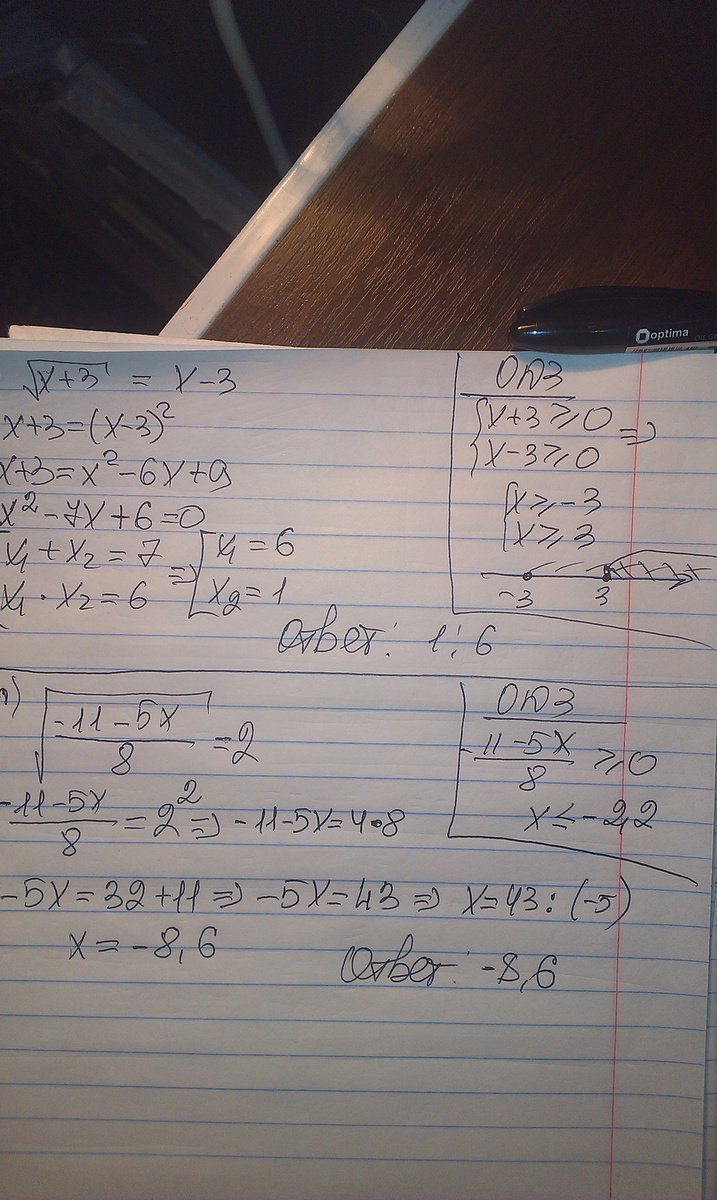 optima
√(x+3) = x-3
x+3=(x-3)²
x+3=x²-6x+9
x²-7x+6=0
x₁+x₂=7
x₁·x₂=6
=> [x₁=6
x₂=1
ОДЗ
{x+3≥0
{x-3≥0 =>
{x≥-3
{x≥3
-3 3
Ответ: 1; 6
√((-11-5x)/8) =2
(-11-5x)/8 = 2² => -11-5x=4·8
ОДЗ
(-11-5x)/8 ≥0
x≤-2,2
-5x=32+11 => -5x=43 => x=43:(-5)
x=-8,6
Ответ: -8,6